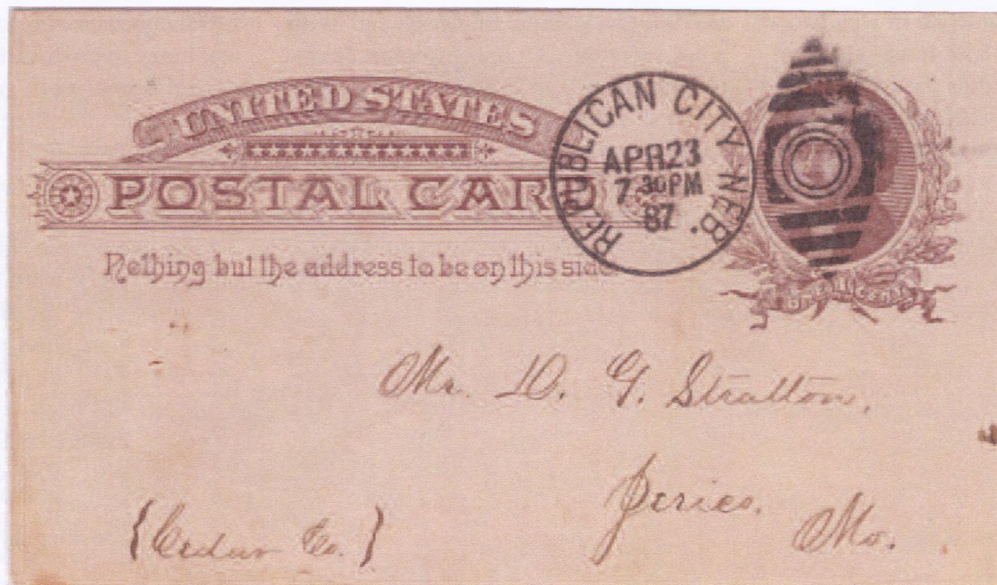 UNITED STATES
POSTAL CARD
Nothing but the address to be on this side.
REPUBLICAN CITY NEB.
APR 23
7 30 PM
87
ONE CENT
Mr. D. G. Stratton,
Jerico,
Mo.
{Cedar Co.}